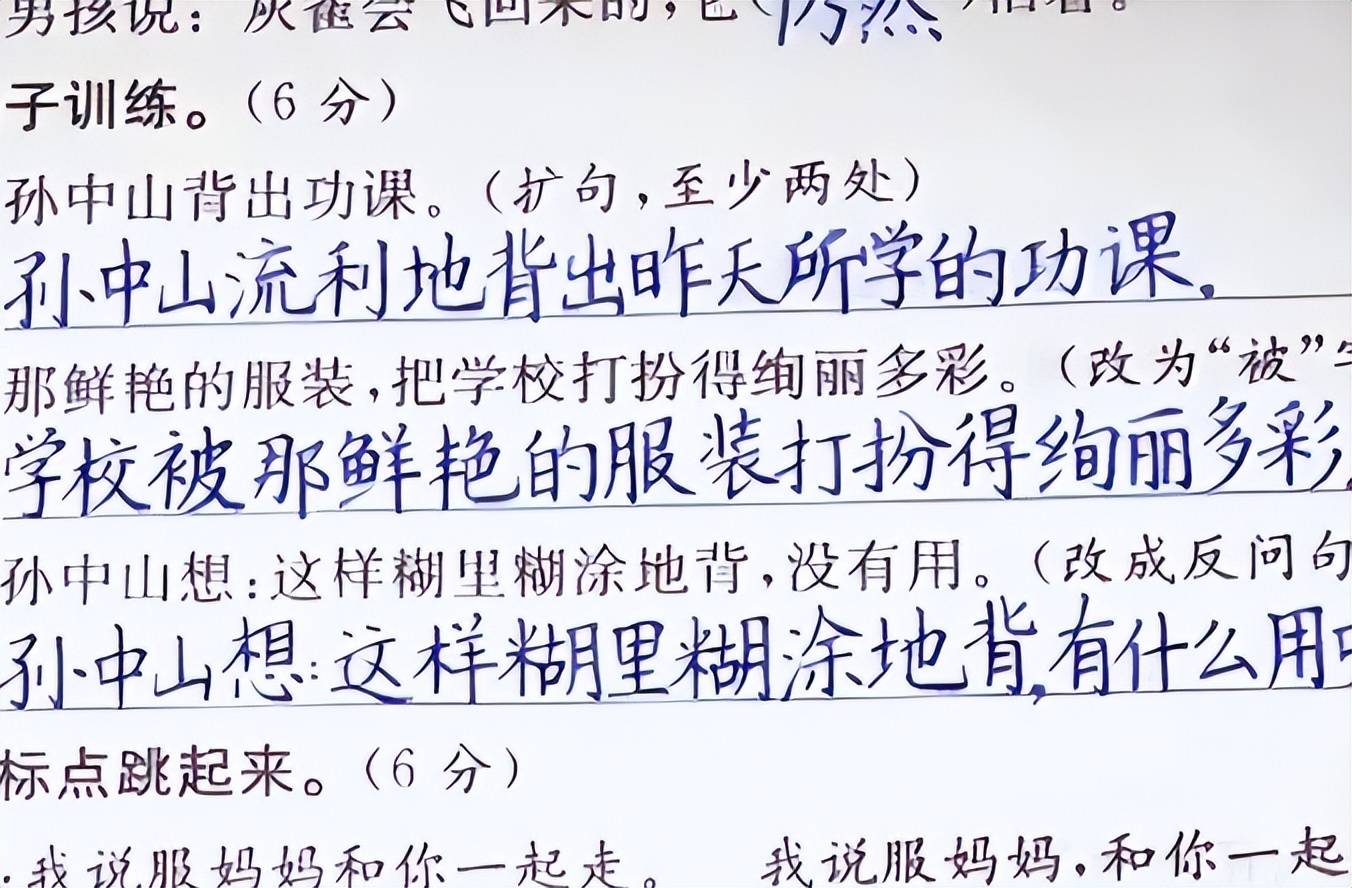 男孩说：灰雀会飞回来的，它（仍然）活着。
子训练。（6 分）
孙中山背出功课。（扩句，至少两处）
孙中山流利地背出昨天所学的功课.
那鲜艳的服装，把学校打扮得绚丽多彩。（改为“被”
学校被那鲜艳的服装打扮得绚丽多彩
孙中山想：这样糊里糊涂地背，没有用。（改成反问句
孙中山想：这样糊里糊涂地背，有什么用
标点跳起来。（6 分）
.我说服妈妈和你一起走。 我说服妈妈.和你一起